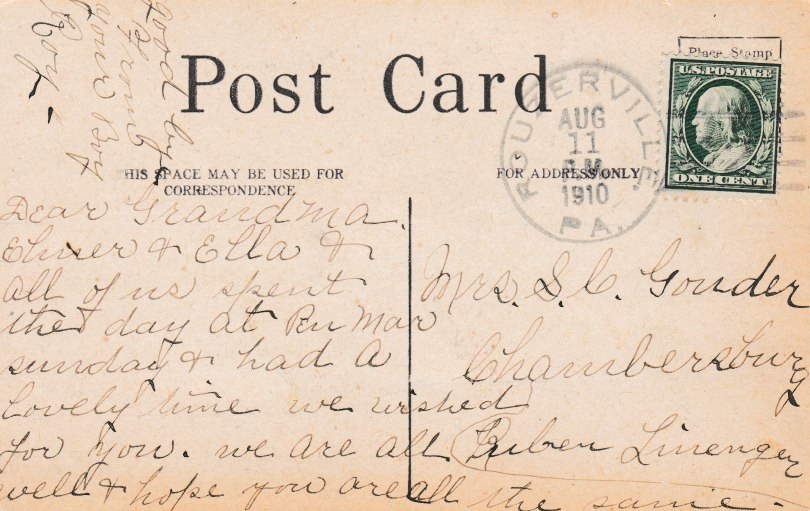 Post Card
Place Stamp
U.S. POSTAGE
ONE CENT
ROUZERVILLE
AUG
11
P.M.
1910
PA.
THIS SPACE MAY BE USED FOR
CORRESPONDENCE
FOR ADDRESS ONLY
Dear Grandma.
Elmer & Ella &
all of us spent
the day at Pen Mar
sunday & had a
lovely time we wished
for you. we are all
well & hope you are all the same.
good by
From
your Boy
Roy
Mrs. S. C. Gonder
Chambersburg
Ruben Linenger